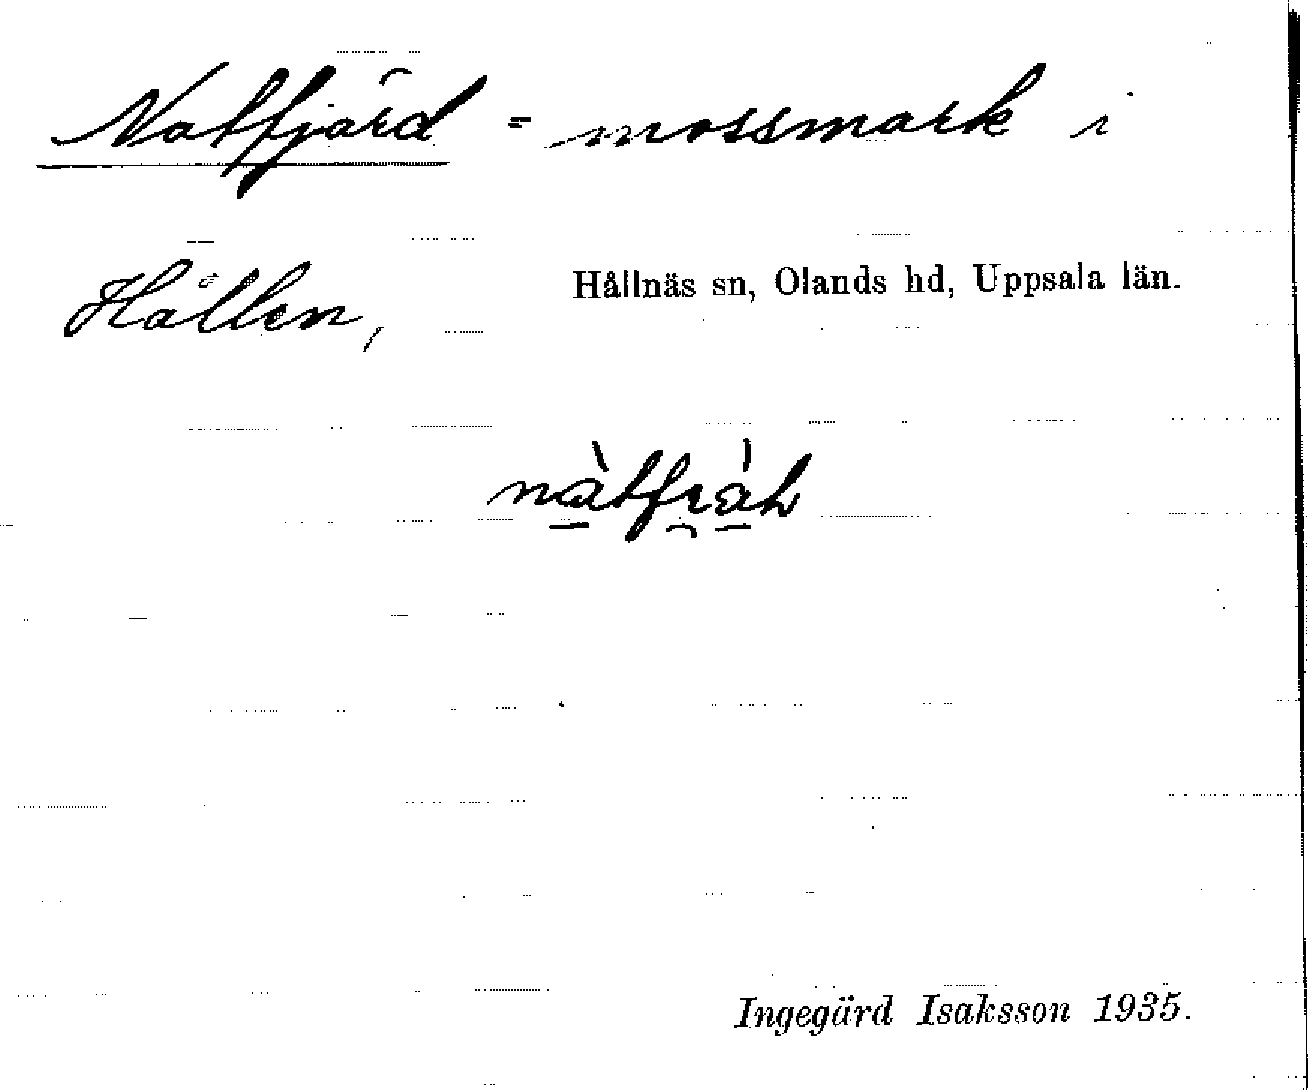 Natfjärd = mossmark i
Hållen, Hållnäs sn, Olands hd, Uppsala län.
Ingegärd Isaksson 1935.